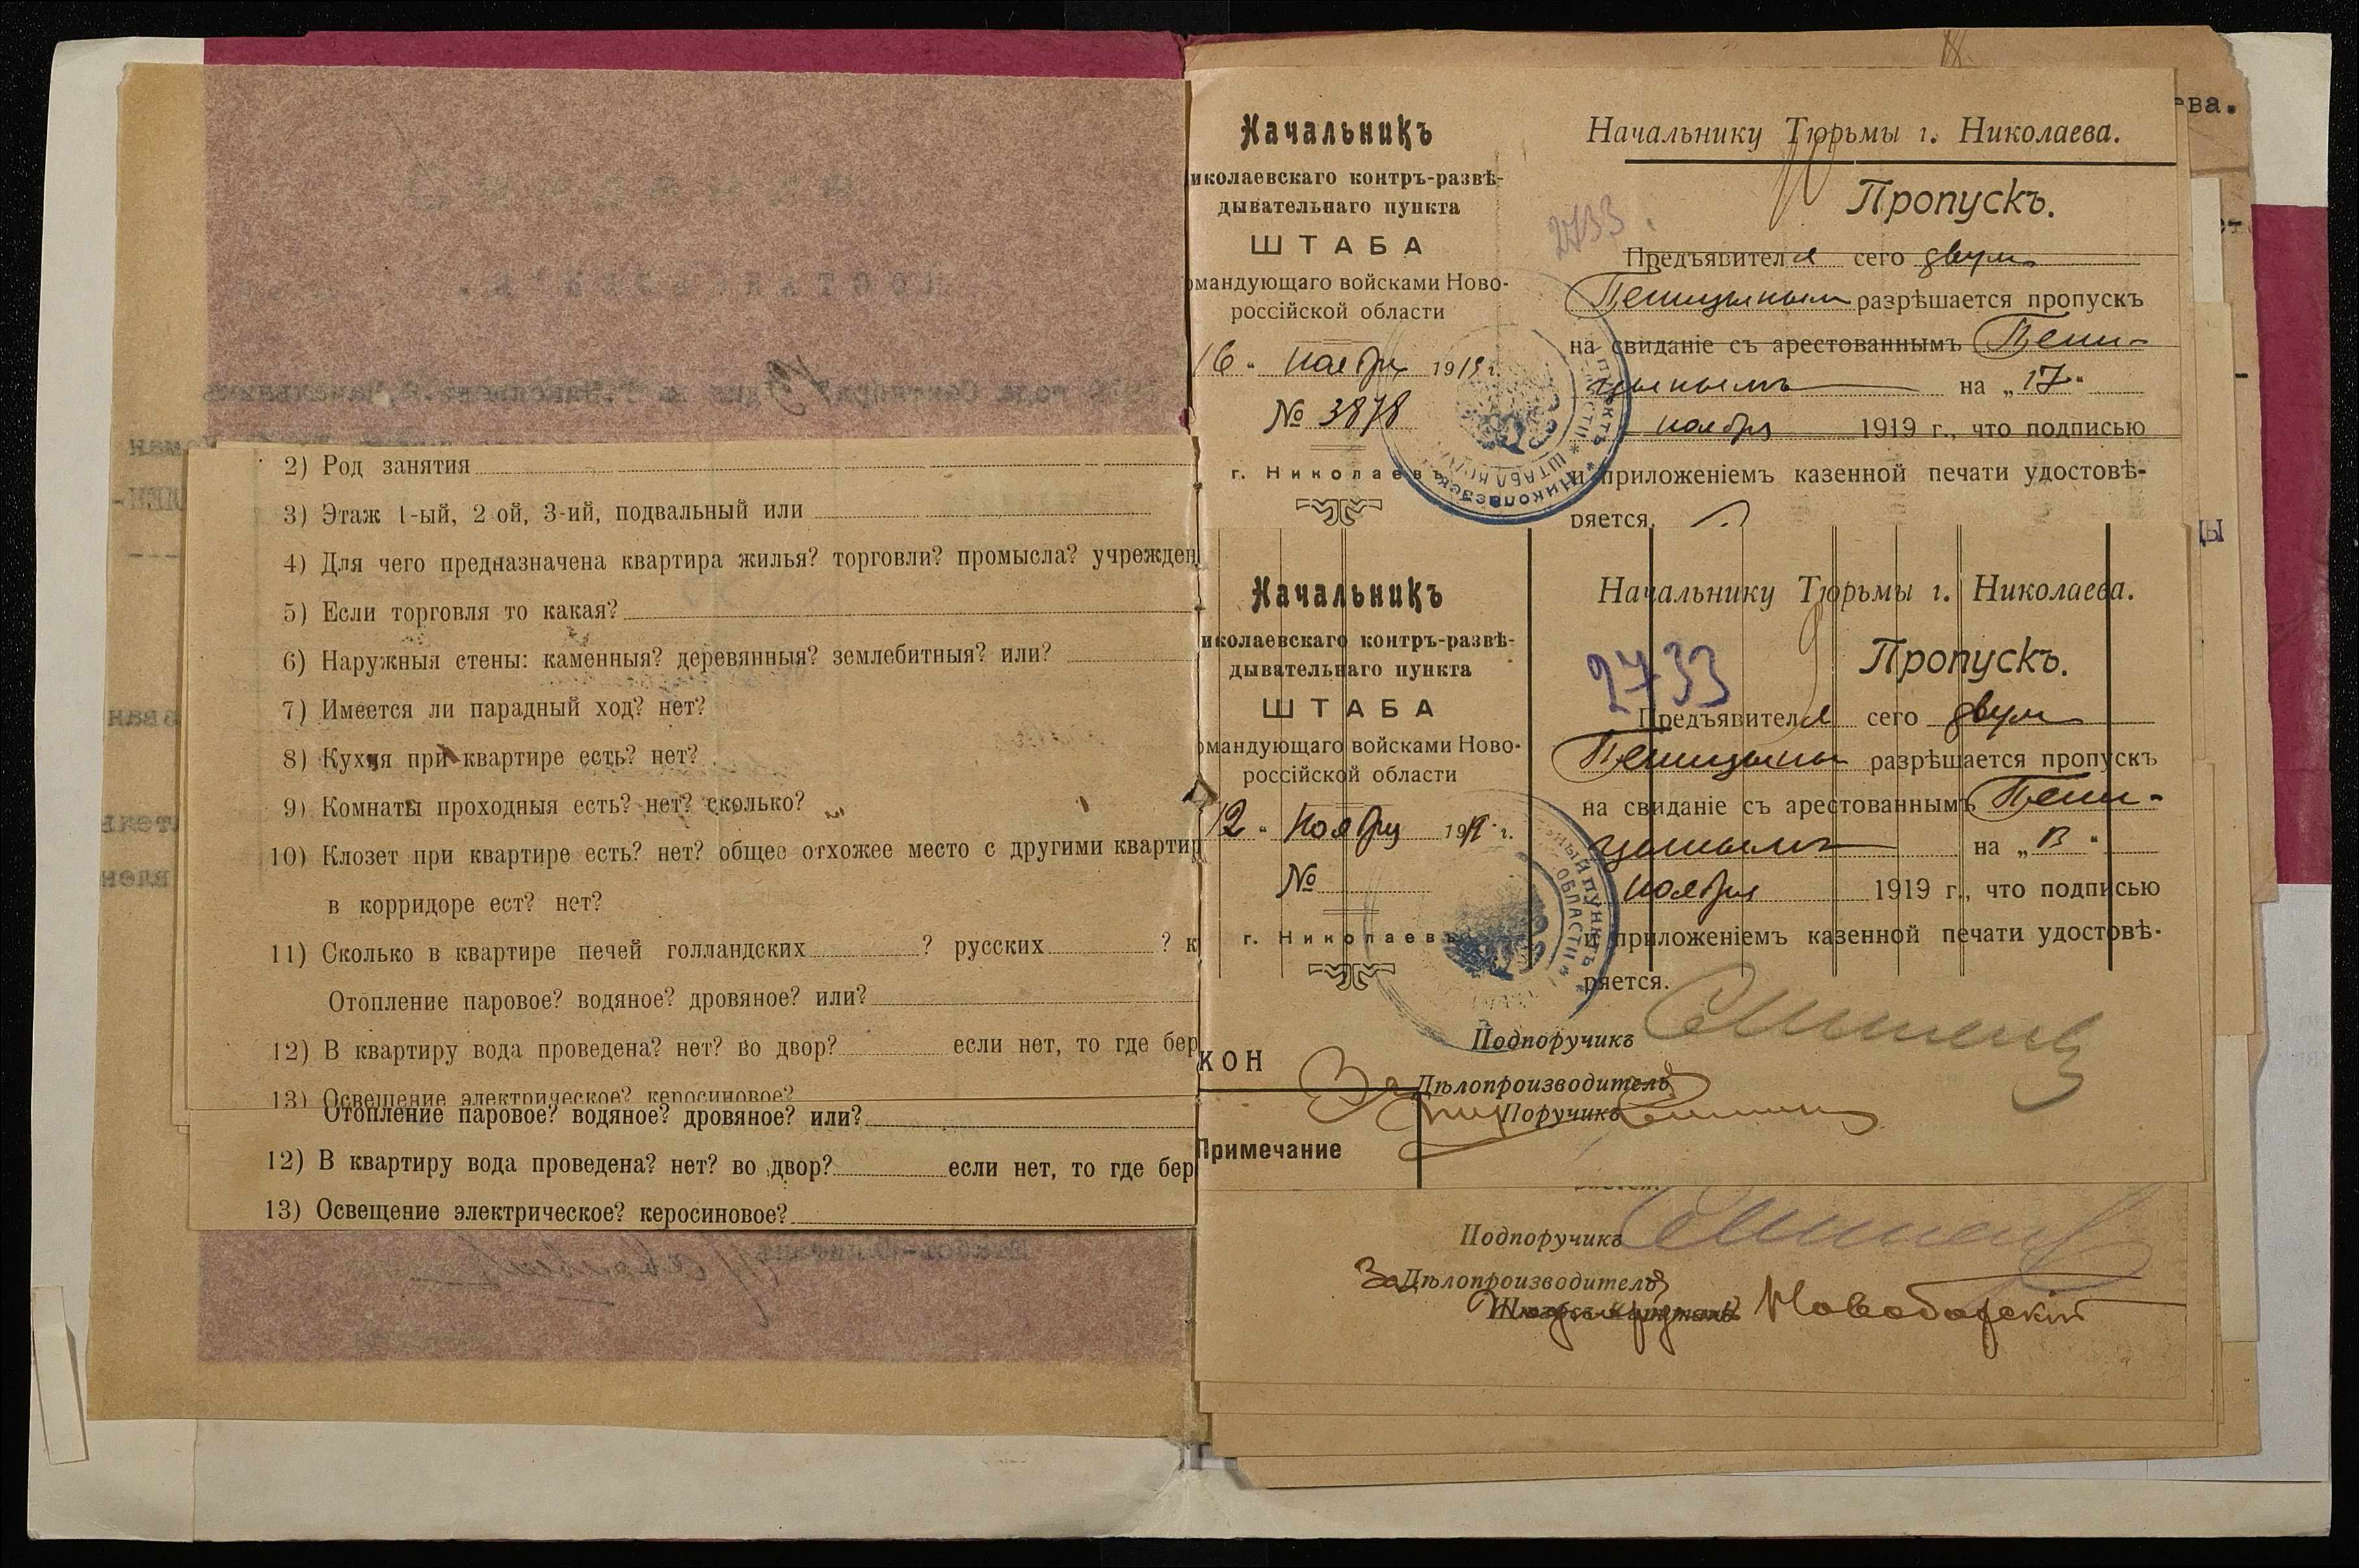 2) Род занятия
3) Этаж 1-ый, 2 ой, 3-ий, подвальный или
4) Для чего предназначена квартира жилья? торговли? промысла? учрежден
5) Если торговля то какая?
6) Наружныя стены: каменныя? деревянныя? землебитныя? или?
7) Имеется ли парадный ход? нет?
8) Кухня при квартире есть? нет?
9) Комнаты проходныя есть? нет? сколько?
10) Клозет при квартире есть? нет? общее отхожее место с другими квартир
в корридоре ест? нет?
11) Сколько в квартире печей голландских ? русских ? к
Отопление паровое? водяное? дровяное? или?
12) В квартиру вода проведена? нет? во двор? если нет, то где бер
13) Освещение электрическое? керосиновое?
Отопление паровое? водяное? дровяное? или?
12) В квартиру вода проведена? нет? во двор? если нет, то где бер
13) Освещение электрическое? керосиновое?
Начальникъ
иколаевскаго контръ-развѣ-
дывательнаго пункта
ШТАБА
омандующаго войсками Ново-
россійской области
16 " ноября 1919 г.
№ 3878
г. Николаевъ
Начальнику Тюрьмы г. Николаева.
Пропускъ.
2733
Предъявителя сего двум
разрѣшается пропускъ
на свиданіе съ арестованнымъ
на „17"
ноября 1919 г., что подписью
и приложеніемъ казенной печати удостовѣ-
ряется.
Начальникъ
иколаевскаго контръ-развѣ-
дывательнаго пункта
ШТАБА
омандующаго войсками Ново-
россійской области
12 " Ноября 1919 г.
№
г. Николаевъ
Начальнику Тюрьмы г. Николаева.
Пропускъ.
2733
Предъявителя сего двум
разрѣшается пропускъ
на свиданіе съ арестованнымъ
на „13"
ноября 1919 г., что подписью
и приложеніемъ казенной печати удостовѣ-
ряется.
Подпоручикъ
За Дѣлопроизводителя
Поручикъ
КОН
Примечание
Подпоручикъ
За Дѣлопроизводителя
ева.